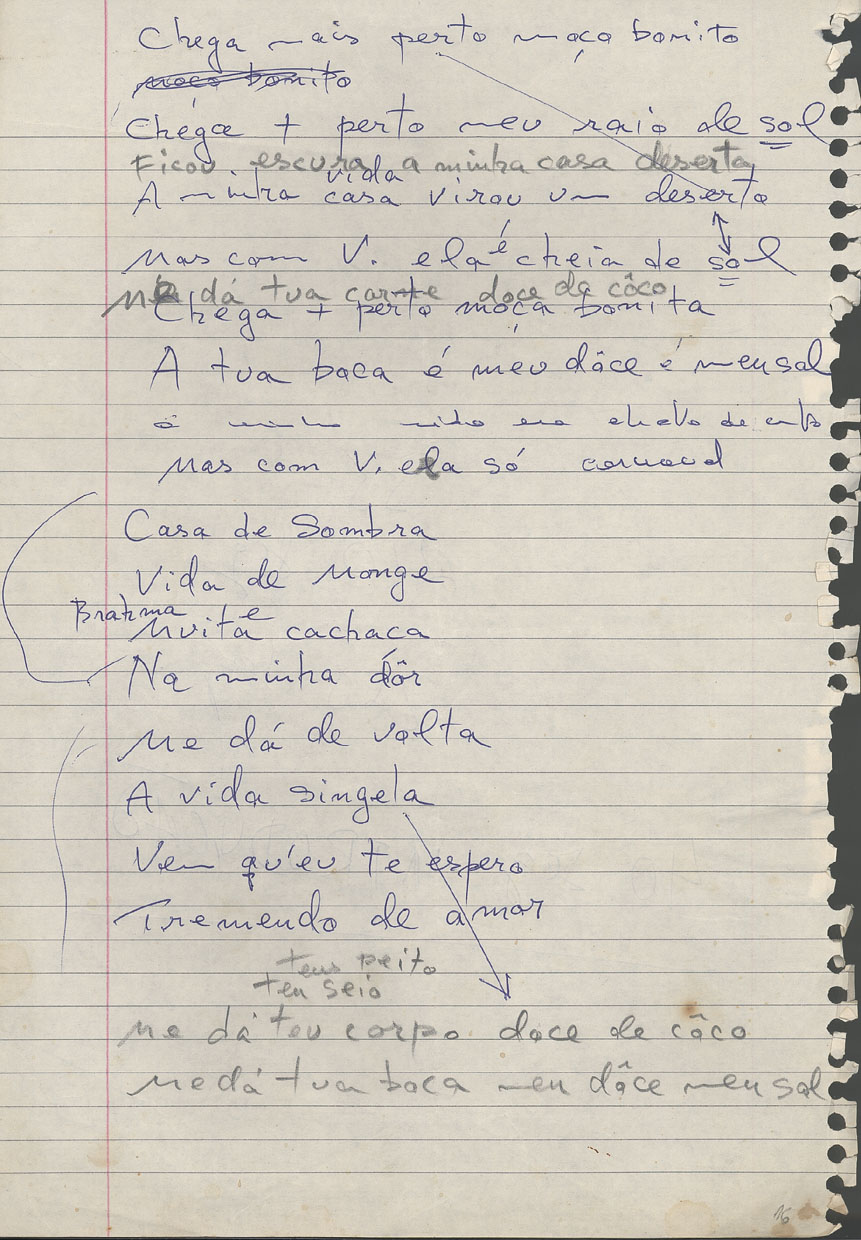 Chega mais perto moço bonito
moço bonito
Chega + perto meu raio de sol
Ficou escura a minha casa deserta
vida
A minha casa virou um deserto
Mas com V. ela é cheia de sol
Me dá tua carne doce de côco
Chega + perto moça bonita
A tua boca é meu dôce é meu sal
Mas com V. ela só carnaval
Casa de Sombra
Vida de Monge
Brahma e
Muita cachaca
Na minha dôr
Me dá de volta
A vida singela
Vem qu'eu te espero
Tremendo de amor
teus peito
teu seio
Me dá teu corpo doce de côco
Me dá tua boca meu dôce meu sal
16